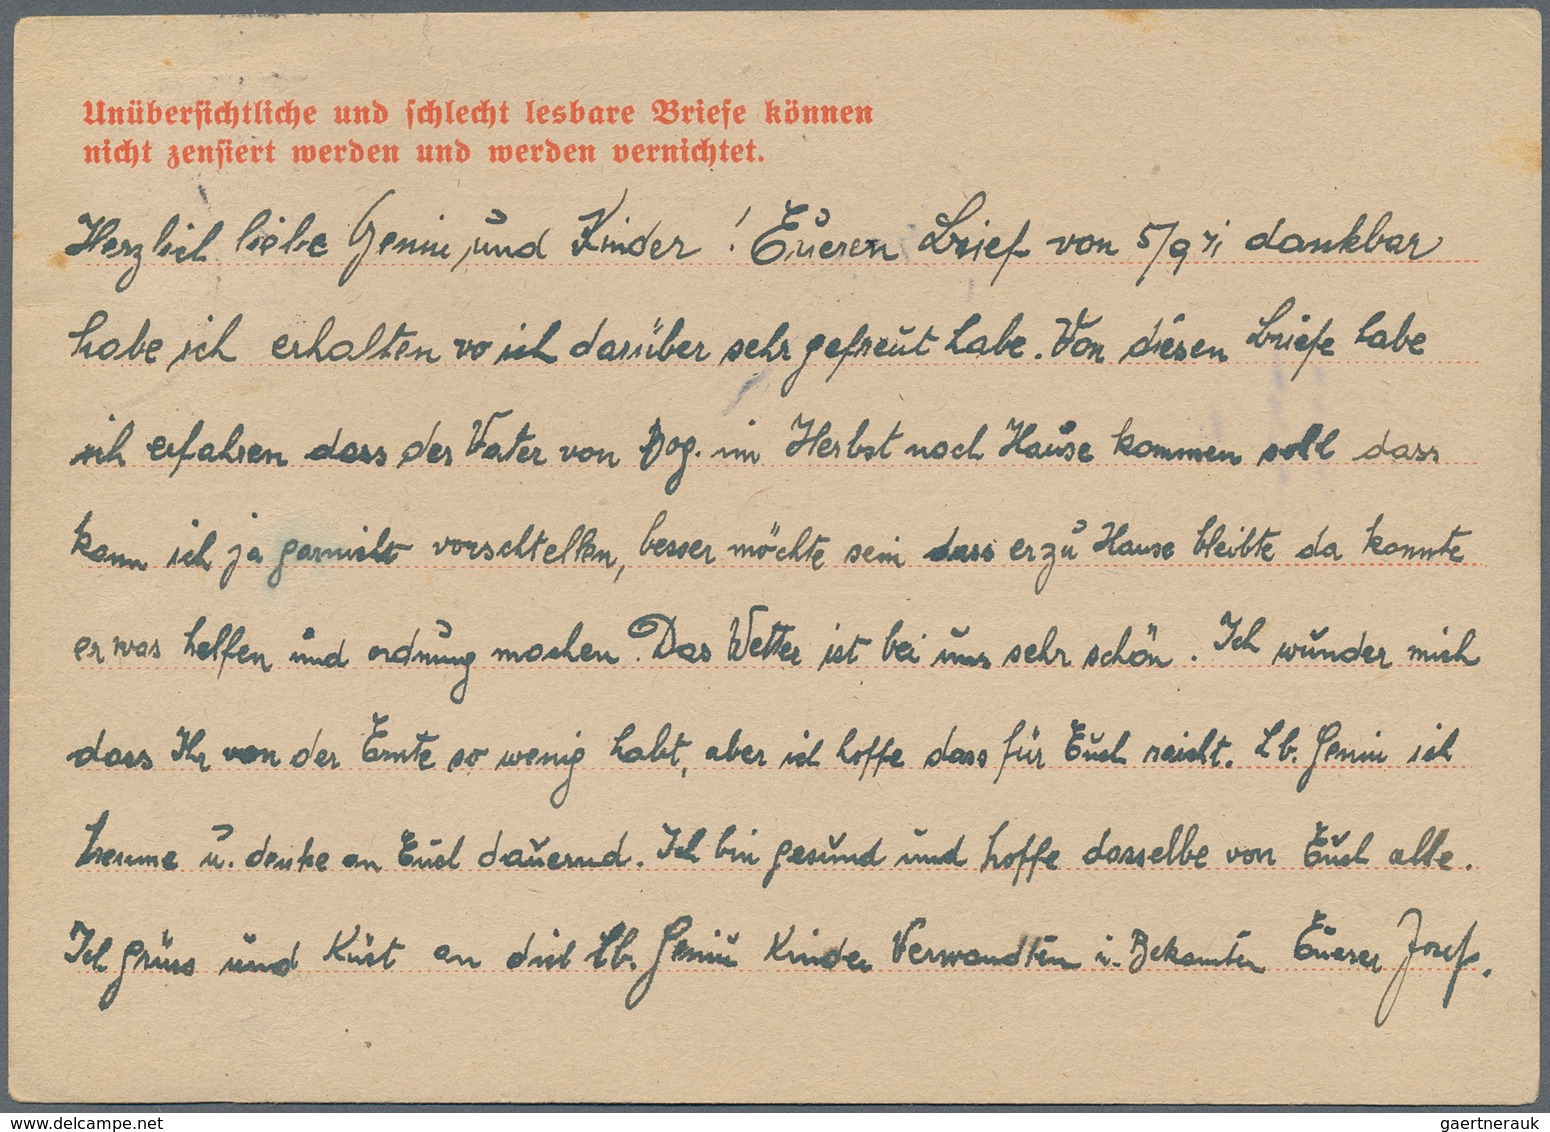 Unübersichtliche und schlecht lesbare Briefe können
nicht zensiert werden und werden vernichtet.
Herzlich liebe Geniu und Kinder! Eueren Brief von 5/9 41 dankbar
habe ich erhalten vo ich darüber sehr gefreut habe. Von diesen Briefe habe
ich erfahren dass der Vater von Bog. im Herbst nach Hause kommen soll dass
kann ich ja garnicht vorschtellen, besser möchte sein dass er zu Hause bleibte da konnte
er was helfen und ordnung machen. Das Wetter ist bei uns sehr schön. Ich wunder mich
dass Ihr von der Ernte so wenig habt, aber ich hoffe dass für Euch reicht. Lb. Geniu ich
treume u. denke an Euch dauernd. Ich bin gesund und hoffe dasselbe von Euch alle.
Ich Grüss und Küst an dich Lb. Geniu Kinder Verwandten u. Bekannten Euerer Josef.
gaertnerauk